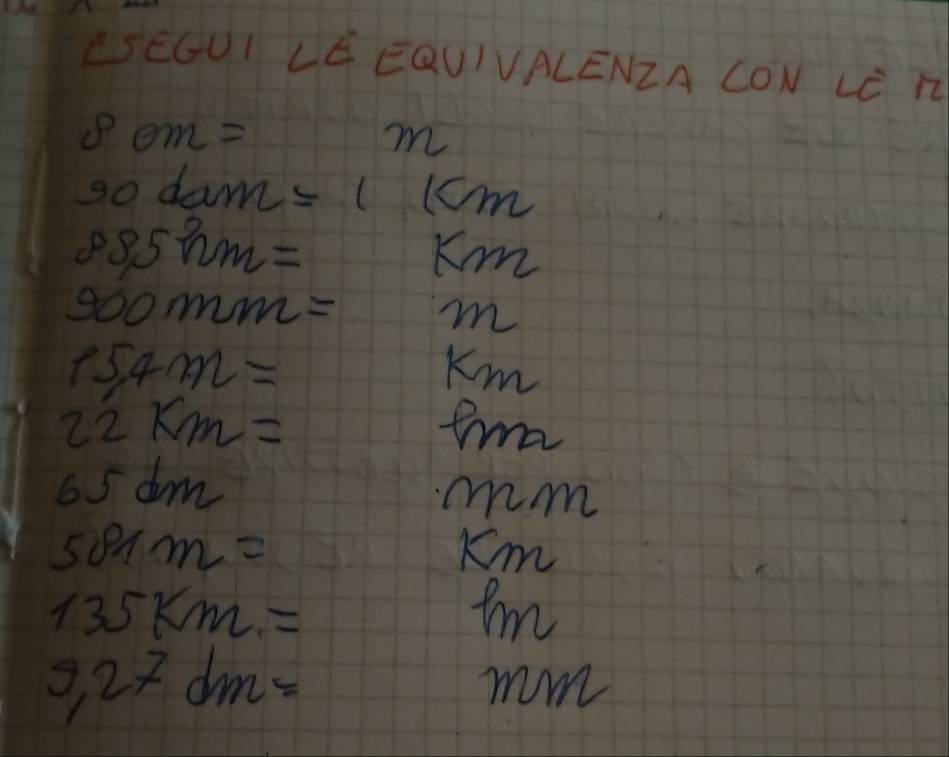 ESEGUI LE EQUIVALENZA CON LE
8 cm = m
90 dam = Km
88,5 hm = Km
900 mm = m
15,4 m = Km
22 Km = hm
65 dm mm
581 m = Km
135 Km = hm
9,27 dm = mm